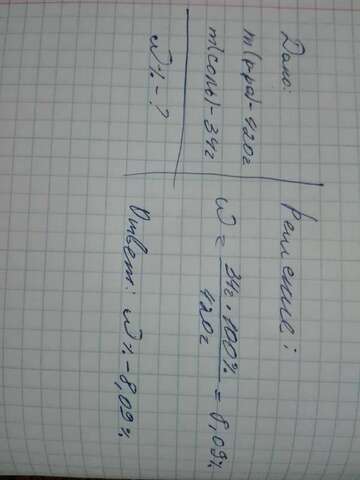 Дано:
m(р-ра)-420г
m(соль)-34г
ω%-?
Решение:
ω = 34г·100% / 420г = 8,09%
Ответ: ω%-8,09%